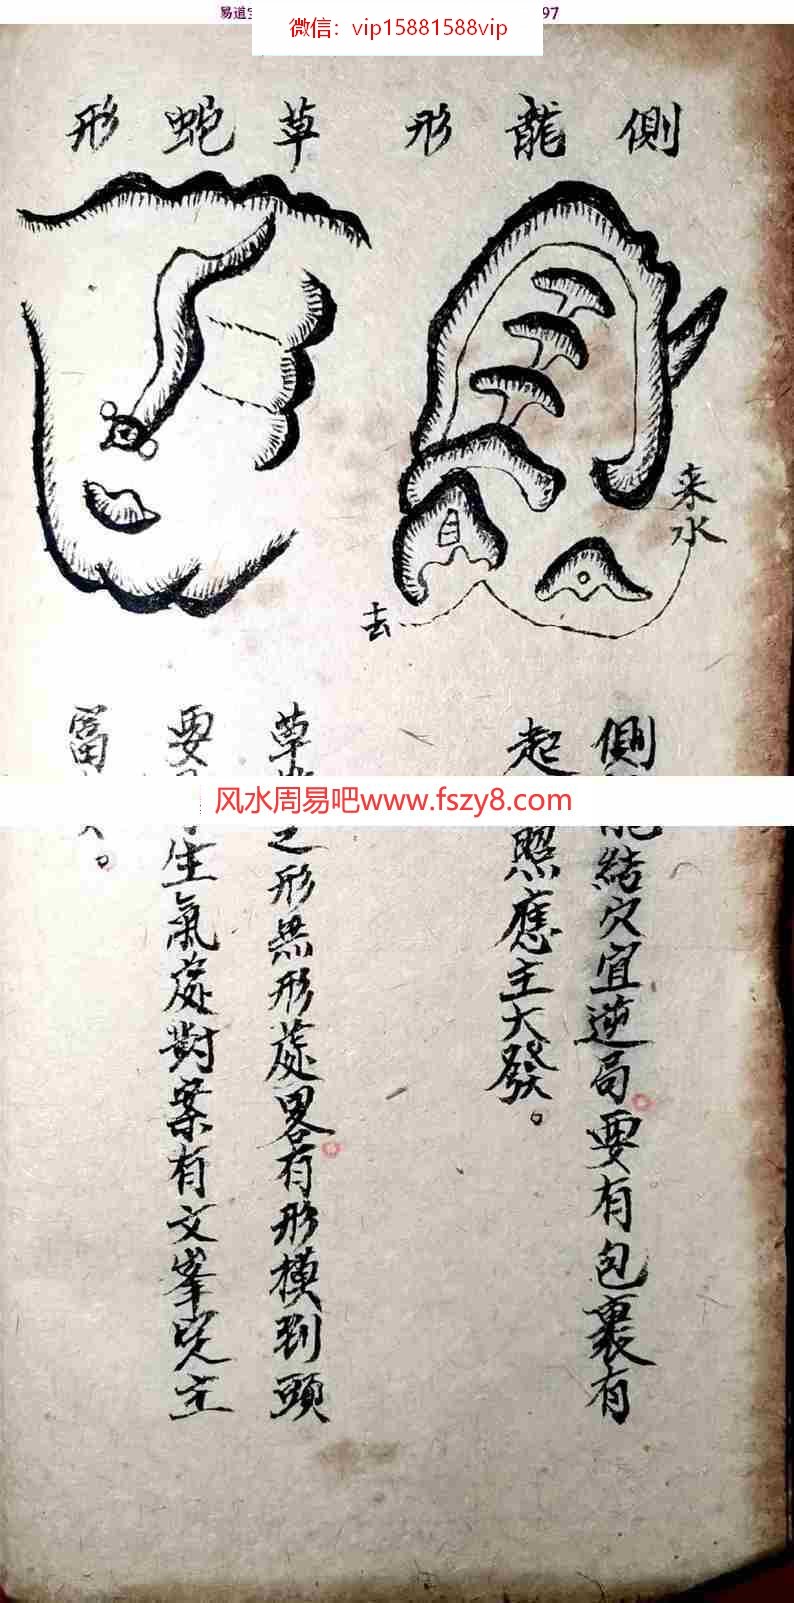 易道
97
微信：vip15881588vip
側龍形
草蛇形
来水
去
側
能結穴宜逆局要有包裹有
起
照應主大發。
草
之形無形處畧有形模到頭
要
生氣處對案有文峯完主
富
風水周易吧www.fszy8.com